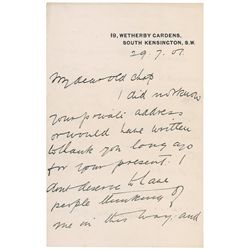 19, WETHERBY GARDENS,
SOUTH KENSINGTON, S.W.
29.7.01.
My dear old chap
I did not know
your private address
or would have written
to thank you long ago
for your present. I
dont deserve to have
people thinking of
me in this way, and